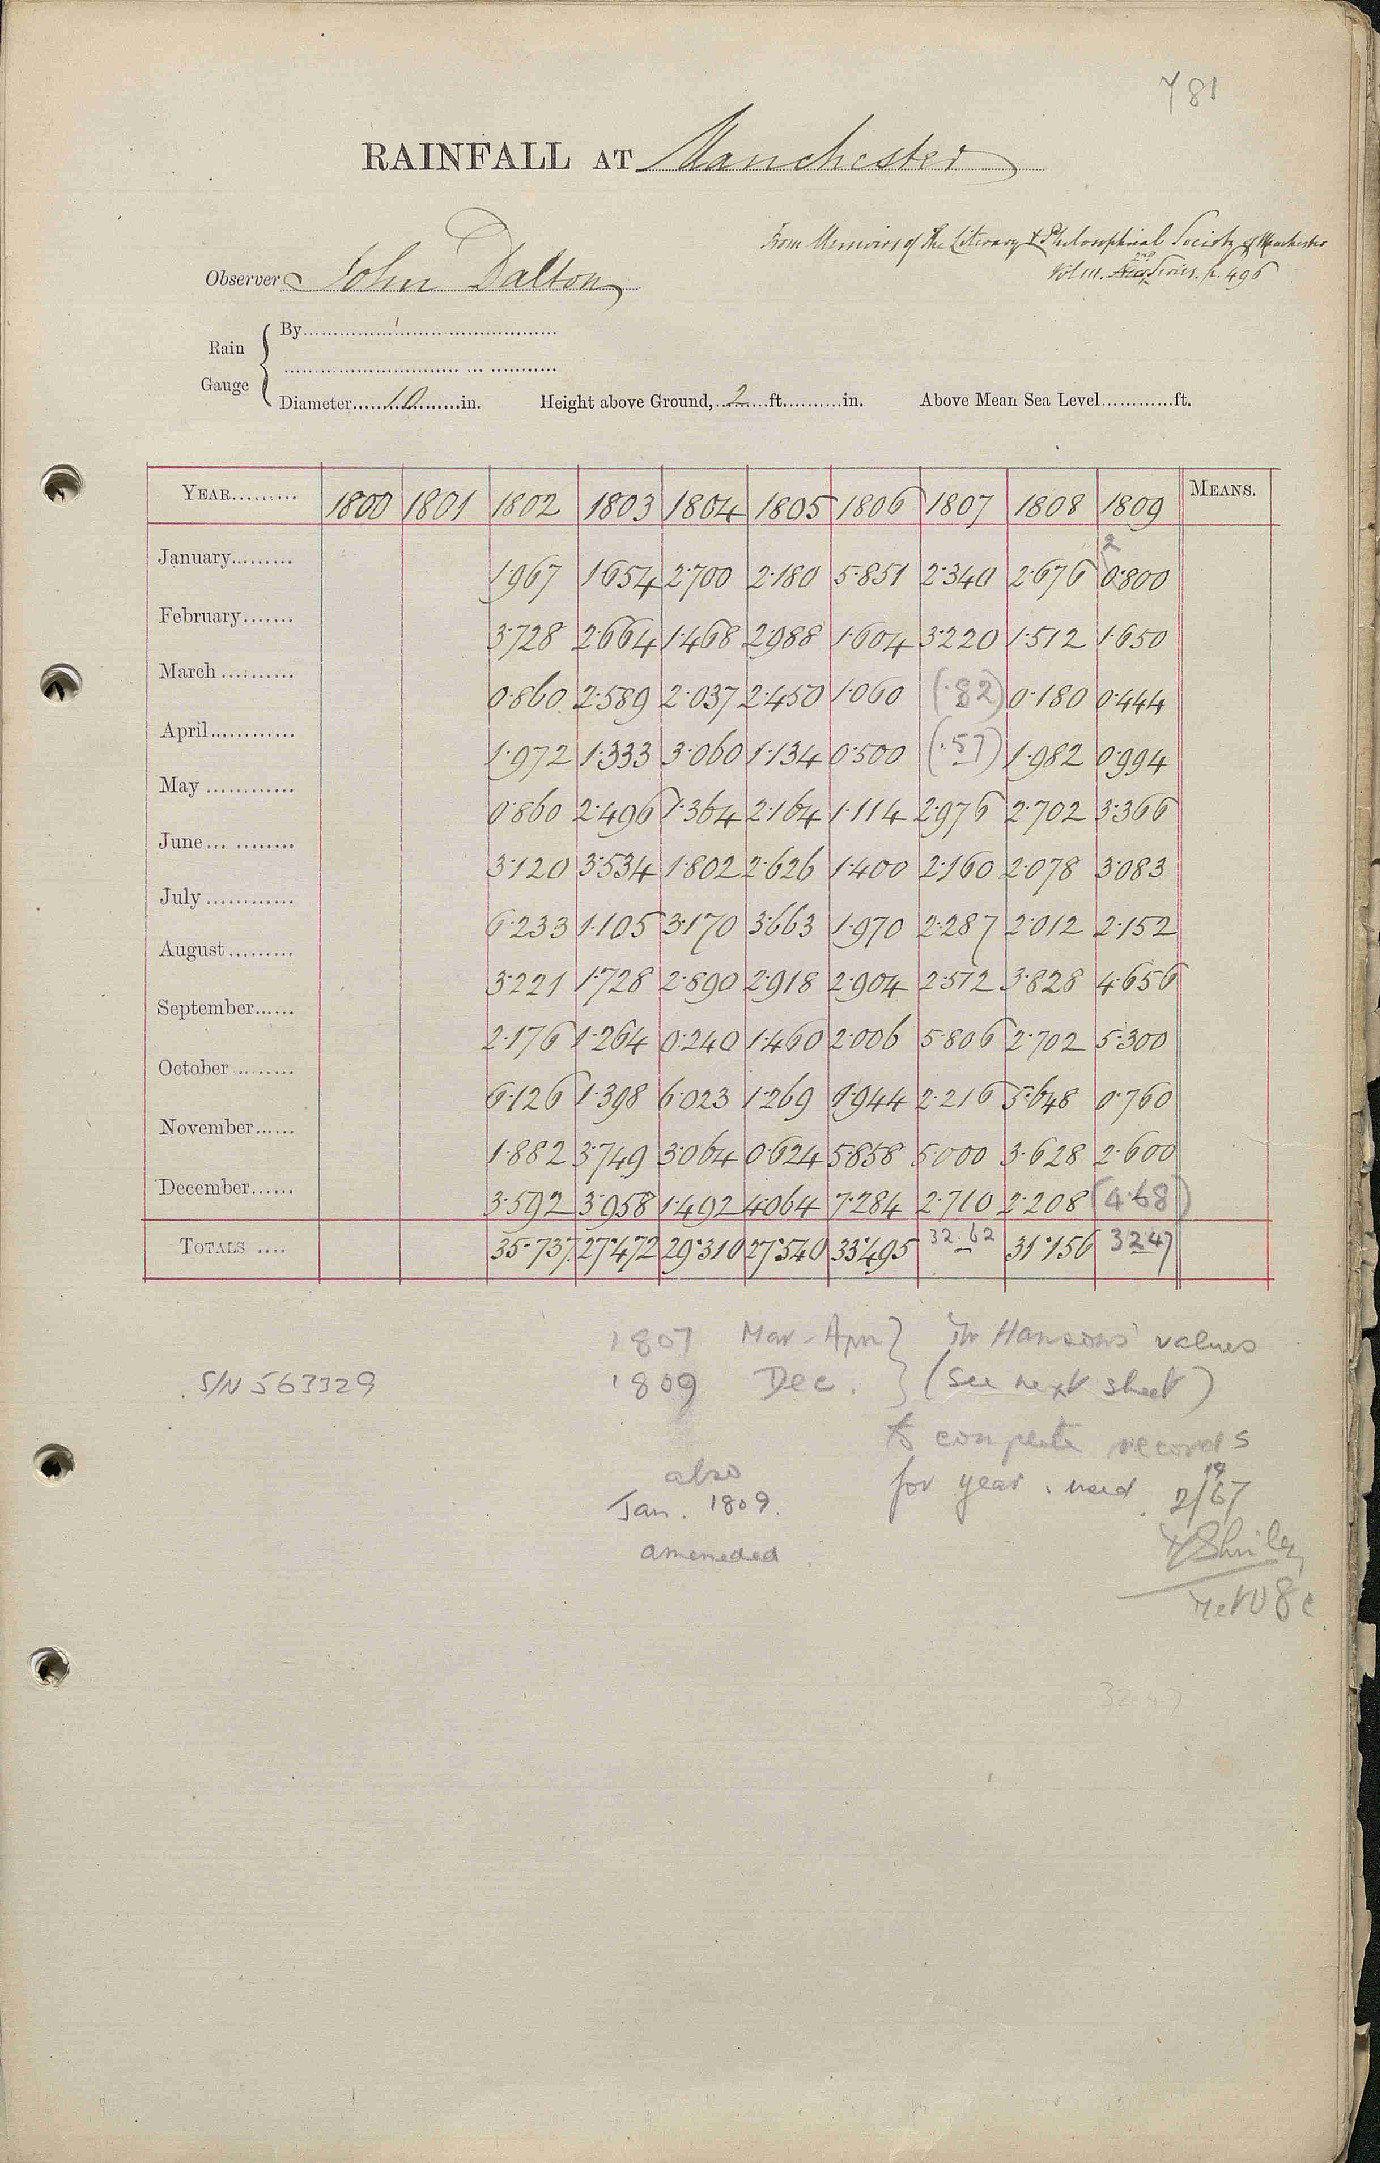 Y81
RAINFALL AT Manchester
From Memoirs of the Literary & Philosophical Society of Manchester
Vol III. 2nd Series. p. 496
Observer John Dalton
Rain Gauge { By
Diameter 10 in. Height above Ground, 2 ft. in. Above Mean Sea Level ft.
YEAR 1800 1801 1802 1803 1804 1805 1806 1807 1808 1809 MEANS.
2
January 1.967 1.654 2.700 2.180 5.851 2.340 2.676 0.800
February 3.728 2.664 1.468 2.988 1.604 3.220 1.512 1.650
March 0.860 2.589 2.037 2.450 1.060 (.82) 0.180 0.444
April 1.972 1.333 3.060 1.134 0.500 (.57) 1.982 0.994
May 0.860 2.496 1.364 2.164 1.114 2.976 2.702 3.366
June 3.120 3.534 1.802 2.626 1.400 2.160 2.078 3.083
July 6.233 1.105 3.170 3.663 1.970 2.287 2.012 2.152
August 3.221 1.728 2.890 2.918 2.904 2.572 3.828 4.656
September 2.176 1.264 0.240 1.460 2.006 5.806 2.702 5.300
October 6.126 1.398 6.023 1.269 1.944 2.216 5.648 0.760
November 1.882 3.749 3.064 0.624 5.858 5.000 3.628 2.600
December 3.592 3.958 1.492 4.064 7.284 2.710 2.208 (4.68)
TOTALS 35.737 27.472 29.310 27.540 33.495 32.62 31.156 32.47
1807 Mar - Apr } Thos Hanson's values
S/N 563329 1809 Dec. } (see next sheet)
to complete records
also for year. used 2/1967
Jan. 1809.
amended
Shirley
Met O 8c
32.47